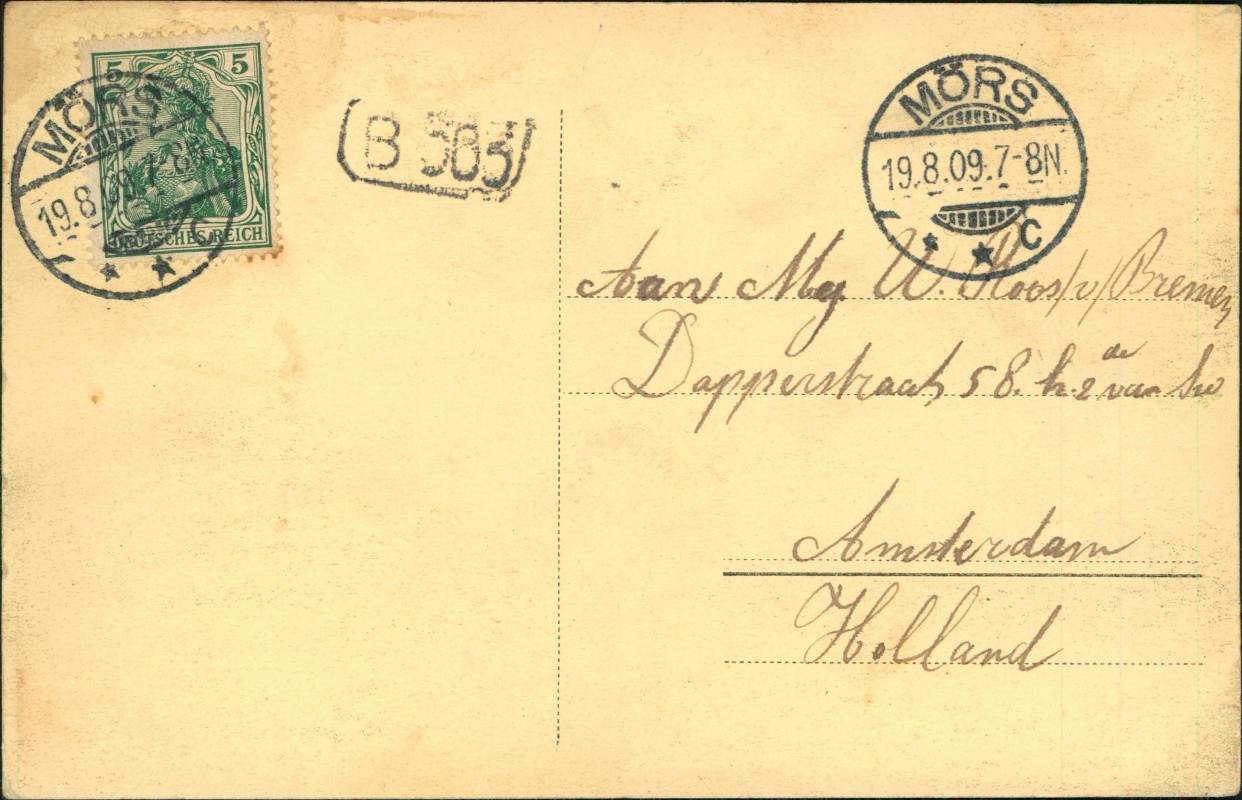 5 5
DEUTSCHES REICH
MÖRS
19.8.09.7-8N.
C
B 583
MÖRS
19.8.09.7-8N.
C
Aan Mej W. Roos/v/Bremen
Dapperstraat 58. h. 2 de van
Amsterdam
Holland